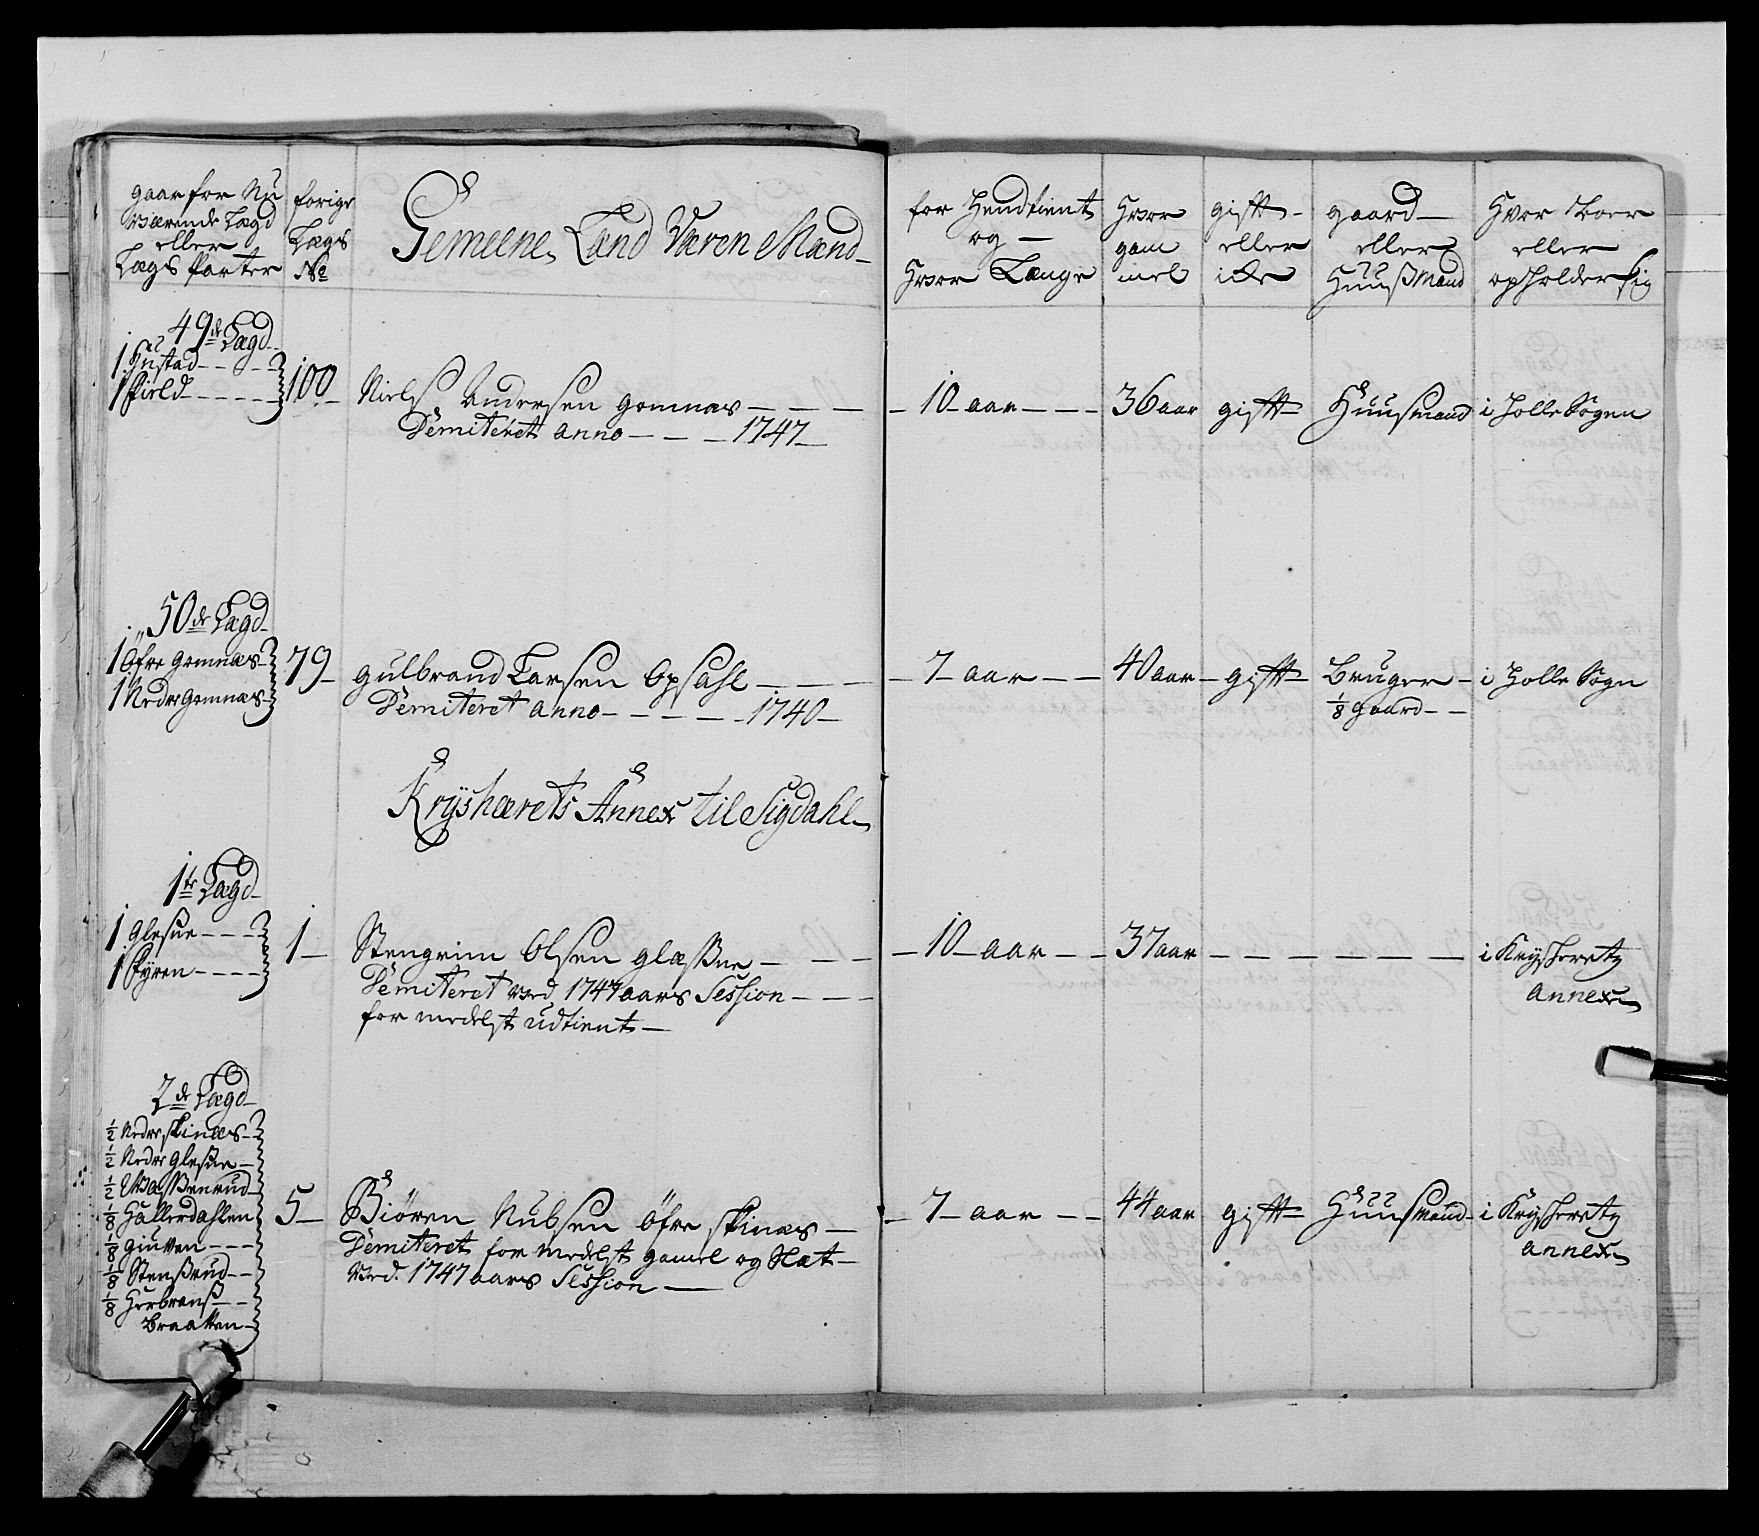 gaar for Nu
værende Lægd
eller
Lægs Parter
forige
Lægs
No
Gemeene Land Værn Mænd
for Hendtient
og
Hvor Længe
Hvor
gam
mel
gift
eller
icke
gaard
eller
Huusmand
Hvor Boer
eller
opholder sig
49de Lægd
1 Hustad
1 Field
100
Niels Andersen gomnæs
Demiteret anno 1747
10 aar
36 aar
gift
Huusmand
i Holle Sogen
50de Lægd
1 Öfre gomnæs
1 Nedre gomnæs
79
gulbrand Larsen Opsahl
Demiteret anno 1740
7 aar
40 aar
gift
Bruger
1/8 gaard
i Holle Sogn
Krÿshærets Annex til Sigdahl
1te Lægd
1 glesne
1 Styren
1
Stengrim Olsen glæssne
Demiteret ved 1747 aars Session
for medelst udtient
10 aar
37 aar
i Krysheretz
annex
2de Lægd
1/2 Nedre skinæs
1/2 Nedre glesne
1/2 Wassenrud
1/8 Hallerdahlen
1/8
1/8 Stensrud
1/8 Herbrans
Braatten
5
Biören Nubsen Öfre skinæs
Demiteret for medelst gamel og Slæt
ved 1747 aars Session
7 aar
44 aar
gift
Huusmand
i Krysheretz
annex